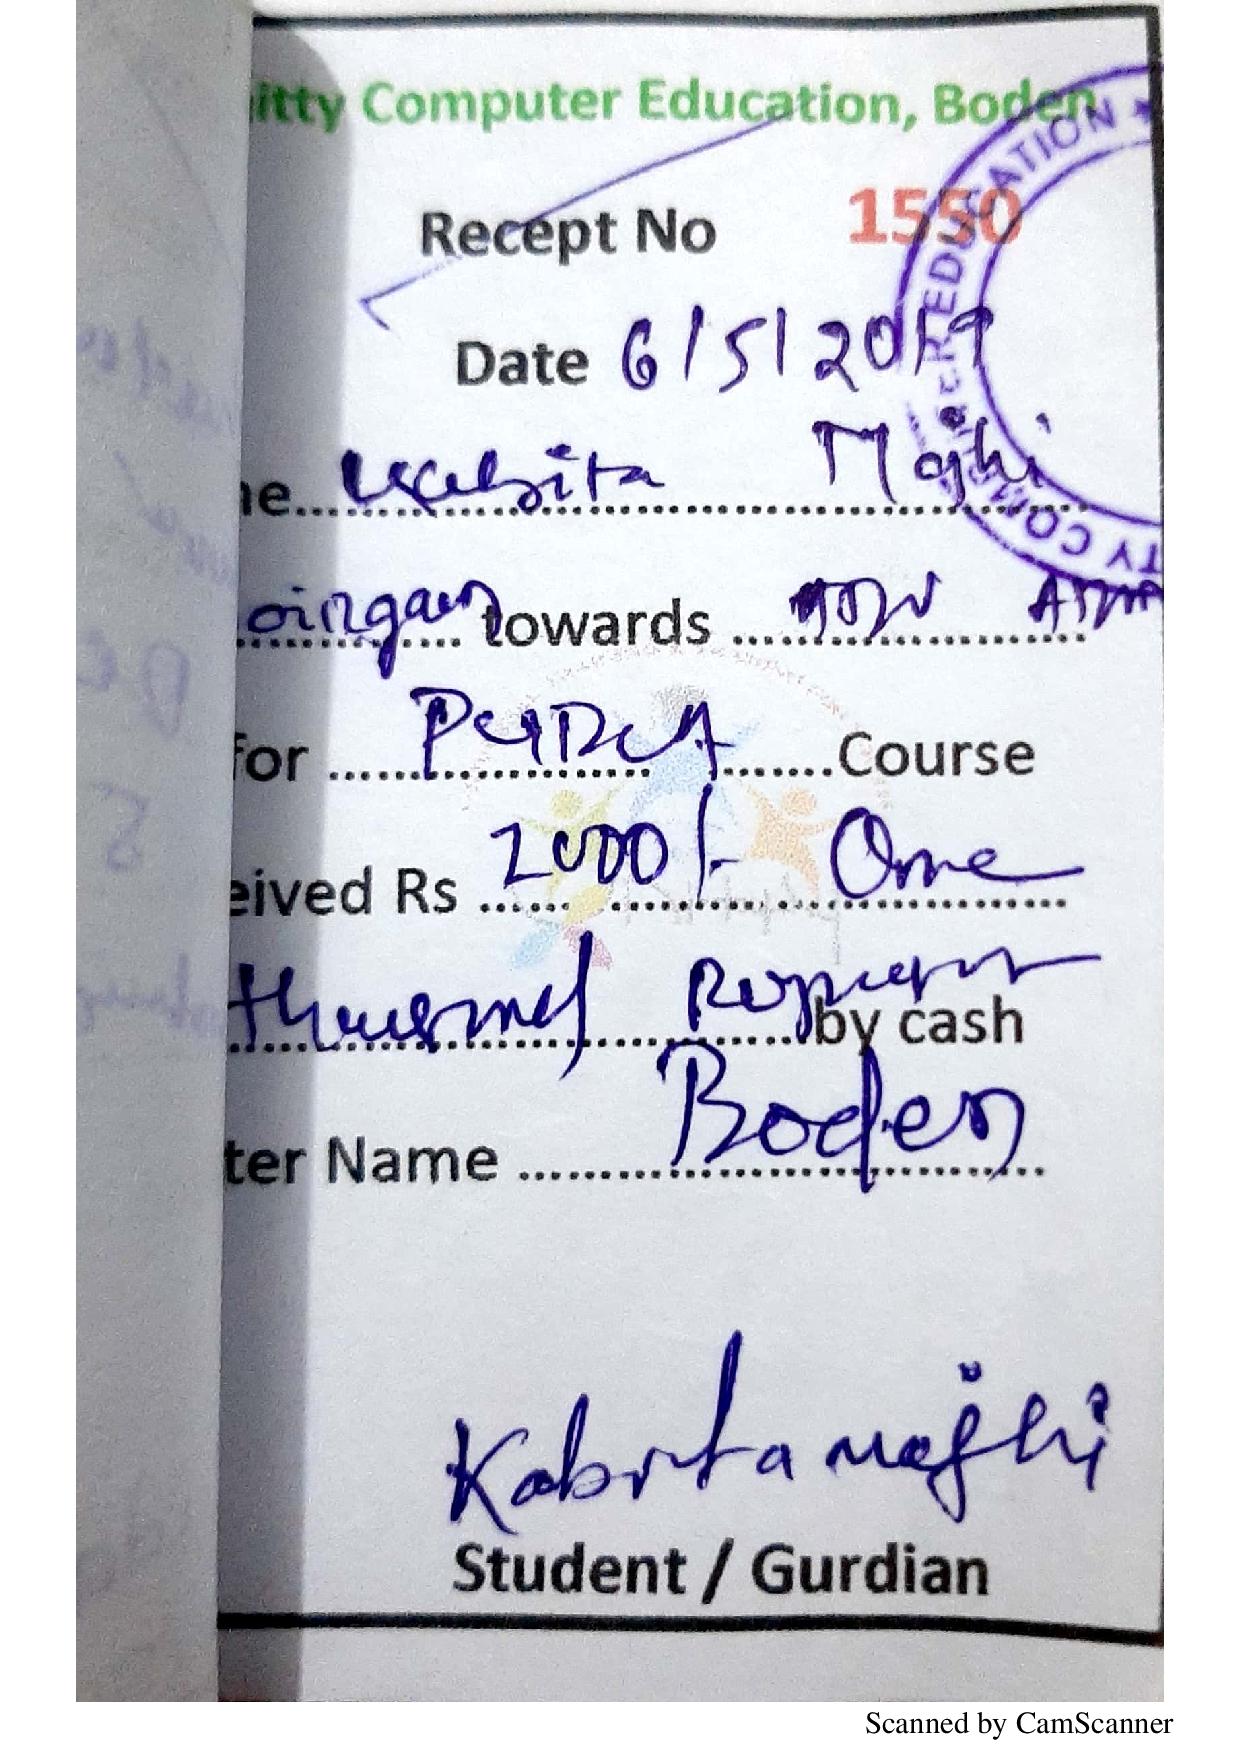 itty Computer Education, Boden
Recept No 1550
Date 6/5/2019
e Kabita Majhi
oirgaon towards
for PGDCA Course
eived Rs 2000/- One
thousand Rupees by cash
ter Name Boden
Kabita majhi
Student / Gurdian
Scanned by CamScanner